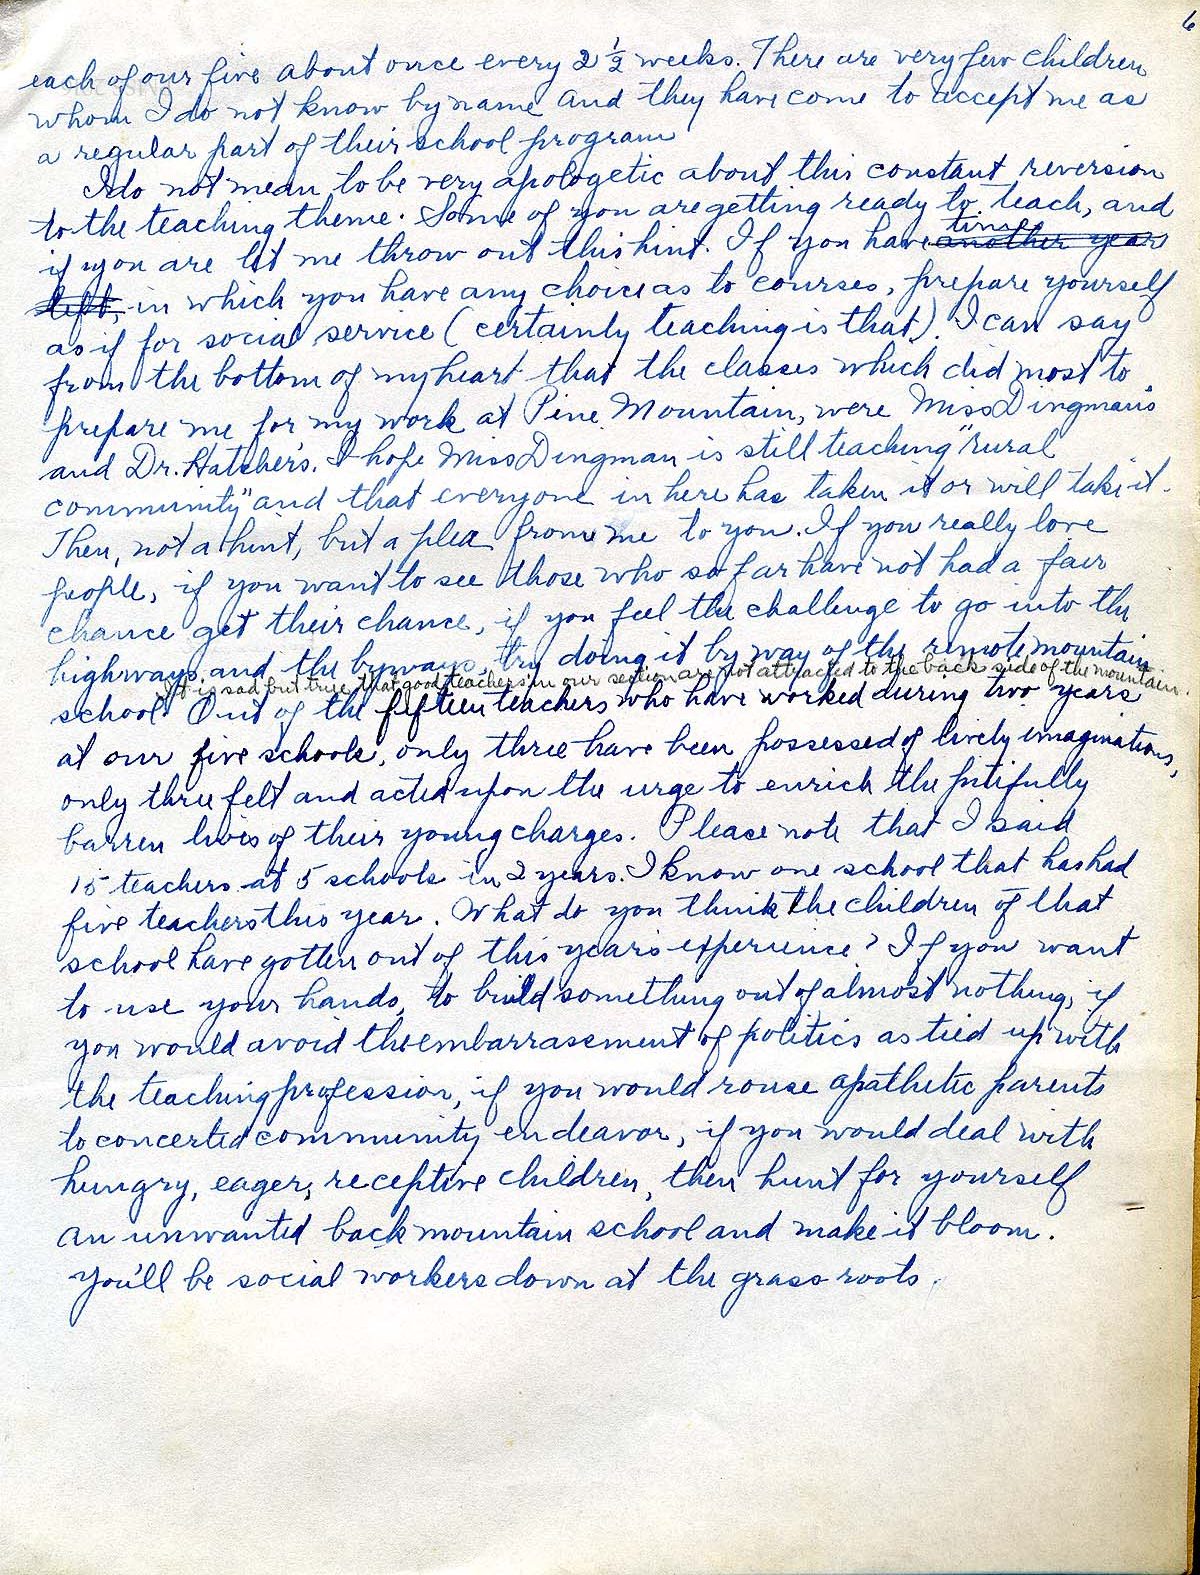 6
each of our five about once every 2 1/2 weeks. There are very few children
whom I do not know by name and they have come to accept me as
a regular part of their school program
I do not mean to be very apologetic about this constant reversion
to the teaching theme. Some of you are getting ready to teach, and
time
if you are let me throw out this hint. If you have another year
left, in which you have any choice as to courses, prepare yourself
as if for social service (certainly teaching is that). I can say
from the bottom of my heart that the classes which did most to
prepare me for my work at Pine Mountain, were Miss Dingman's
and Dr. Hatcher's. I hope Miss Dingman is still teaching "rural
community" and that everyone in here has taken it or will take it.
Then, not a hint, but a plea from me to you. If you really love
people, if you want to see those who so far have not had a fair
chance get their chance, if you feel the challenge to go into the
highways and the byways, try doing it by way of the remote mountain
It is sad but true that good teachers in our section are not attracted to the back side of the mountain.
school. Out of the fifteen teachers who have worked during two years
at our five schools, only three have been possessed of lively imaginations,
only three felt and acted upon the urge to enrich the pitifully
barren lives of their young charges. Please note that I said
15 teachers at 5 schools in 2 years. I know one school that has had
five teachers this year. What do you think the children of that
school have gotten out of this year's experience? If you want
to use your hands, to build something out of almost nothing, if
you would avoid the embarrasement of politics as tied up with
the teaching profession, if you would rouse apathetic parents
to concerted community endeavor, if you would deal with
hungry, eager, receptive children, then hunt for yourself
an unwanted back mountain school and make it bloom.
You'll be social workers down at the grass roots.